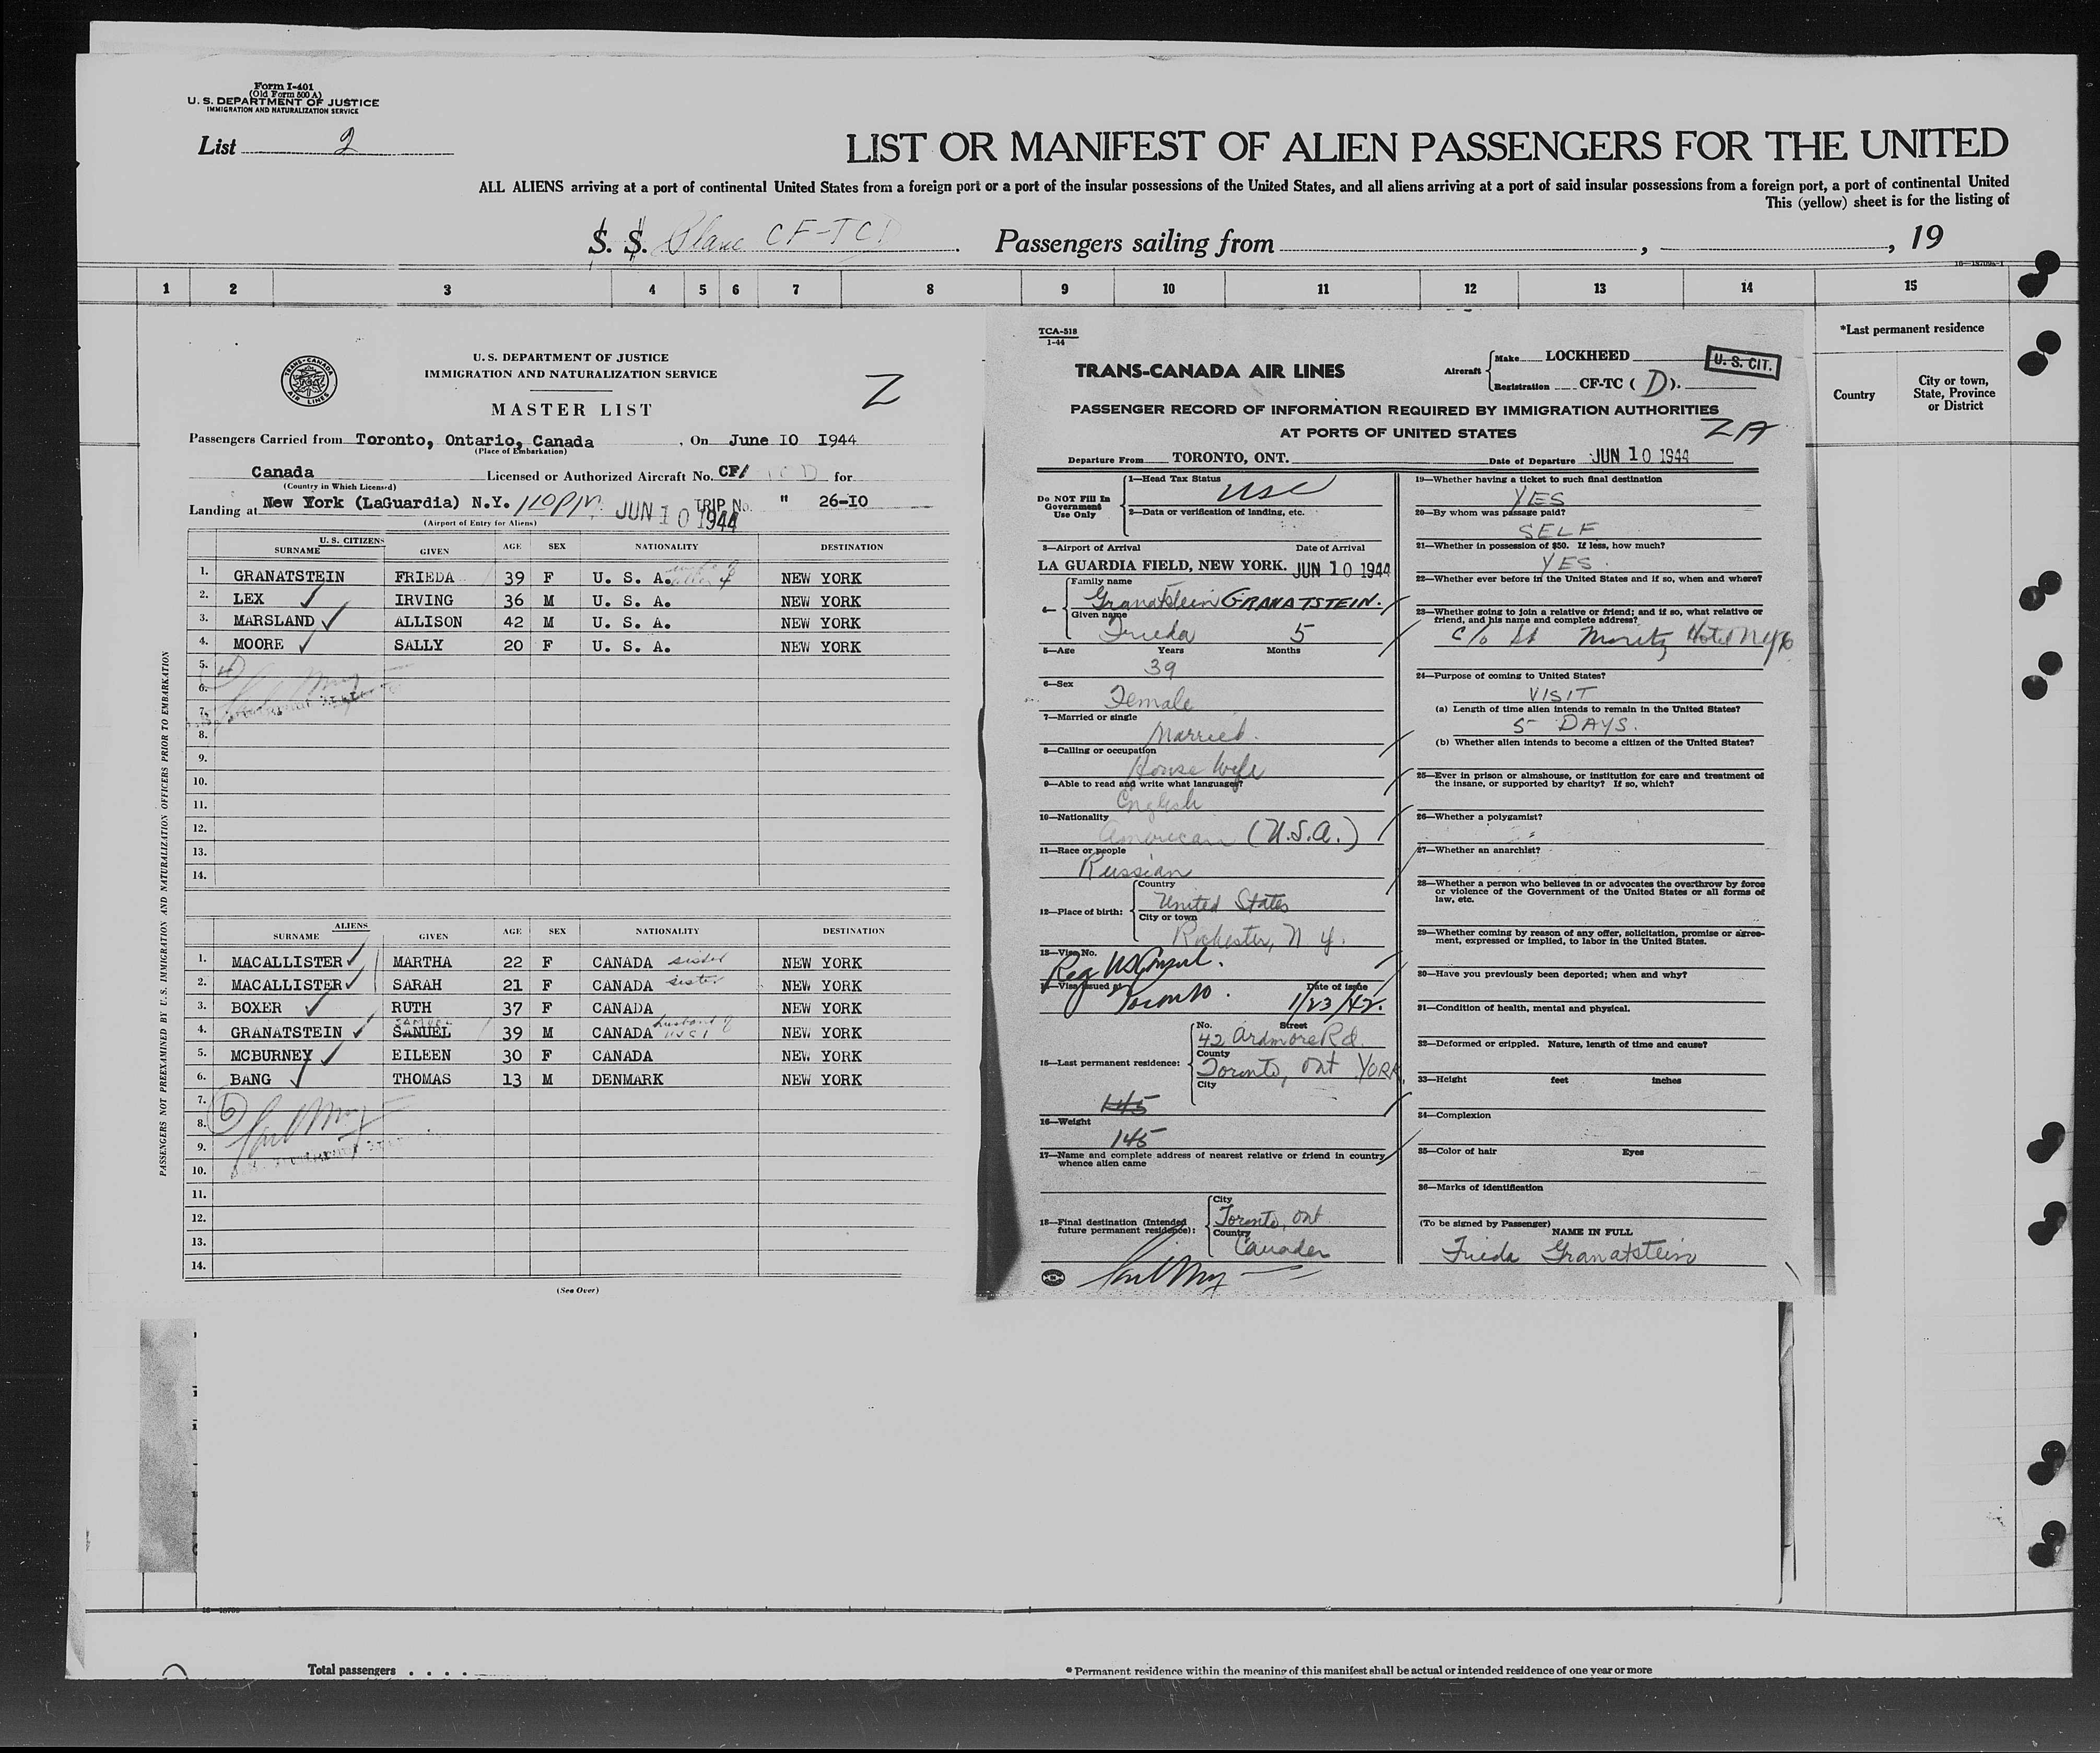 Form I-401
(Old Form 500 A)
U. S. DEPARTMENT OF JUSTICE
IMMIGRATION AND NATURALIZATION SERVICE
List 2
LIST OR MANIFEST OF ALIEN PASSENGERS FOR THE UNITED
ALL ALIENS arriving at a port of continental United States from a foreign port or a port of the insular possessions of the United States, and all aliens arriving at a port of said insular possessions from a foreign port, a port of continental United
This (yellow) sheet is for the listing of
S. S. Plane CF-TCD. Passengers sailing from , , 19
1 2 3 4 5 6 7 8 9 10 11 12 13 14 15
*Last permanent residence
Country
City or town, State, Province or District
TRANS-CANADA AIR LINES
U. S. DEPARTMENT OF JUSTICE
IMMIGRATION AND NATURALIZATION SERVICE
MASTER LIST
2
Passengers Carried from Toronto, Ontario, Canada. On June IO I944
(Place of Embarkation)
Canada Licensed or Authorized Aircraft No. CF/ TCD for
(Country in Which Licensed)
Landing at New York (LaGuardia) N.Y. 110PM JUN 10 1944 TRIP No. " 26-IO
(Airport of Entry for Aliens)
U. S. CITIZENS
SURNAME GIVEN AGE SEX NATIONALITY DESTINATION
1. GRANATSTEIN FRIEDA 39 F U. S. A. wife of alien 4 NEW YORK
2. LEX IRVING 36 M U. S. A. NEW YORK
3. MARSLAND ALLISON 42 M U. S. A. NEW YORK
4. MOORE SALLY 20 F U. S. A. NEW YORK
5. (4)
6.
7.
8.
9.
10.
11.
12.
13.
14.
ALIENS
SURNAME GIVEN AGE SEX NATIONALITY DESTINATION
1. MACALLISTER MARTHA 22 F CANADA sister NEW YORK
2. MACALLISTER SARAH 21 F CANADA sister NEW YORK
3. BOXER RUTH 37 F CANADA NEW YORK
SAMUEL
4. GRANATSTEIN SANUEL 39 M CANADA husband of USC1 NEW YORK
5. MCBURNEY EILEEN 30 F CANADA NEW YORK
6. BANG THOMAS 13 M DENMARK NEW YORK
7.
8. (6)
9.
10.
11.
12.
13.
14.
(See Over)
PASSENGERS NOT PREEXAMINED BY U.S. IMMIGRATION AND NATURALIZATION OFFICERS PRIOR TO EMBARKATION
TCA-518
1-44
TRANS-CANADA AIR LINES
Aircraft Make LOCKHEED
Registration CF-TC (D).
U. S. CIT.
PASSENGER RECORD OF INFORMATION REQUIRED BY IMMIGRATION AUTHORITIES
AT PORTS OF UNITED STATES
2A
Departure From TORONTO, ONT. Date of Departure JUN 10 1944
Do NOT Fill In Government Use Only
1—Head Tax Status USC
2—Data or verification of landing, etc.
3—Airport of Arrival Date of Arrival
LA GUARDIA FIELD, NEW YORK. JUN 10 1944
4— Family name
Granatstein GRANATSTEIN.
Given name
Frieda 5
5—Age Years Months
39
6—Sex
Female
7—Married or single
Married.
8—Calling or occupation
House Wife
9—Able to read and write what language?
English
10—Nationality
American (U.S.A.)
11—Race or people
Russian
12—Place of birth: Country
United States
City or town
Rochester, N.Y.
13—Visa No.
Reg US Consul.
14—Visa issued at Date of issue
Toronto. 1/23/42.
15—Last permanent residence: No. Street
42 Ardmore Rd.
County
Toronto, Ont YORK.
City
145
16—Weight
145
17—Name and complete address of nearest relative or friend in country whence alien came
18—Final destination (Intended future permanent residence): City
Toronto, Ont
Country
Canada
19—Whether having a ticket to such final destination
YES
20—By whom was passage paid?
SELF
21—Whether in possession of $50. If less, how much?
YES.
22—Whether ever before in the United States and if so, when and where?
23—Whether going to join a relative or friend; and if so, what relative or friend, and his name and complete address?
c/o St Moritz Hotel NYC
24—Purpose of coming to United States?
VISIT
(a) Length of time alien intends to remain in the United States?
5 DAYS.
(b) Whether alien intends to become a citizen of the United States?
25—Ever in prison or almshouse, or institution for care and treatment of the insane, or supported by charity? If so, which?
26—Whether a polygamist?
27—Whether an anarchist?
28—Whether a person who believes in or advocates the overthrow by force or violence of the Government of the United States or all forms of law, etc.
29—Whether coming by reason of any offer, solicitation, promise or agreement, expressed or implied, to labor in the United States.
30—Have you previously been deported; when and why?
31—Condition of health, mental and physical.
32—Deformed or crippled. Nature, length of time and cause?
33—Height feet inches
34—Complexion
35—Color of hair Eyes
36—Marks of identification
(To be signed by Passenger) NAME IN FULL
Frieda Granatstein
Total passengers . . . .
* Permanent residence within the meaning of this manifest shall be actual or intended residence of one year or more